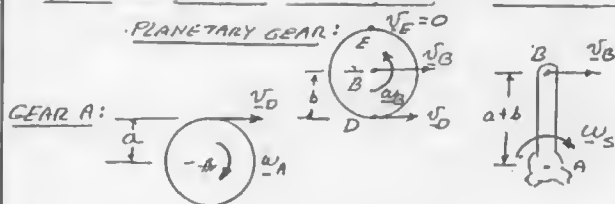 PLANETARY GEAR: v_E = 0
E
B v_B
b ω_B
D v_D
GEAR A: v_D
a
A ω_A
B v_B
a+b
ω_S
A